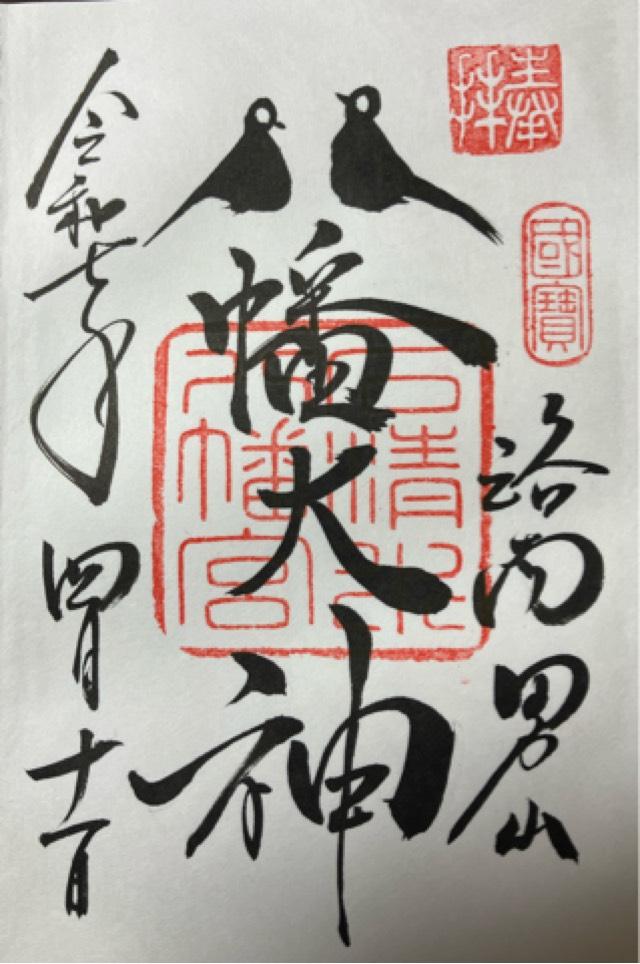 奉拝
國寶
洛南男山
八幡大神
石清水八幡宮
令和七年四月十一日